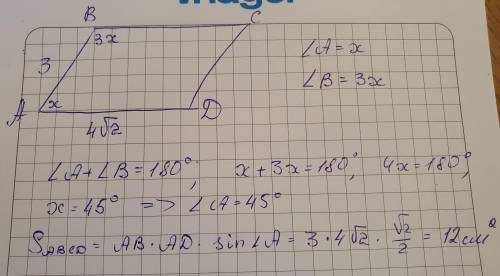 B
C
3
3x
∠A = x
∠B = 3x
A
x
D
4√2
∠A + ∠B = 180°; x + 3x = 180°; 4x = 180°;
x = 45° => ∠A = 45°
S_ABCD = AB · AD · sin∠A = 3 · 4√2 · √2/2 = 12 см²